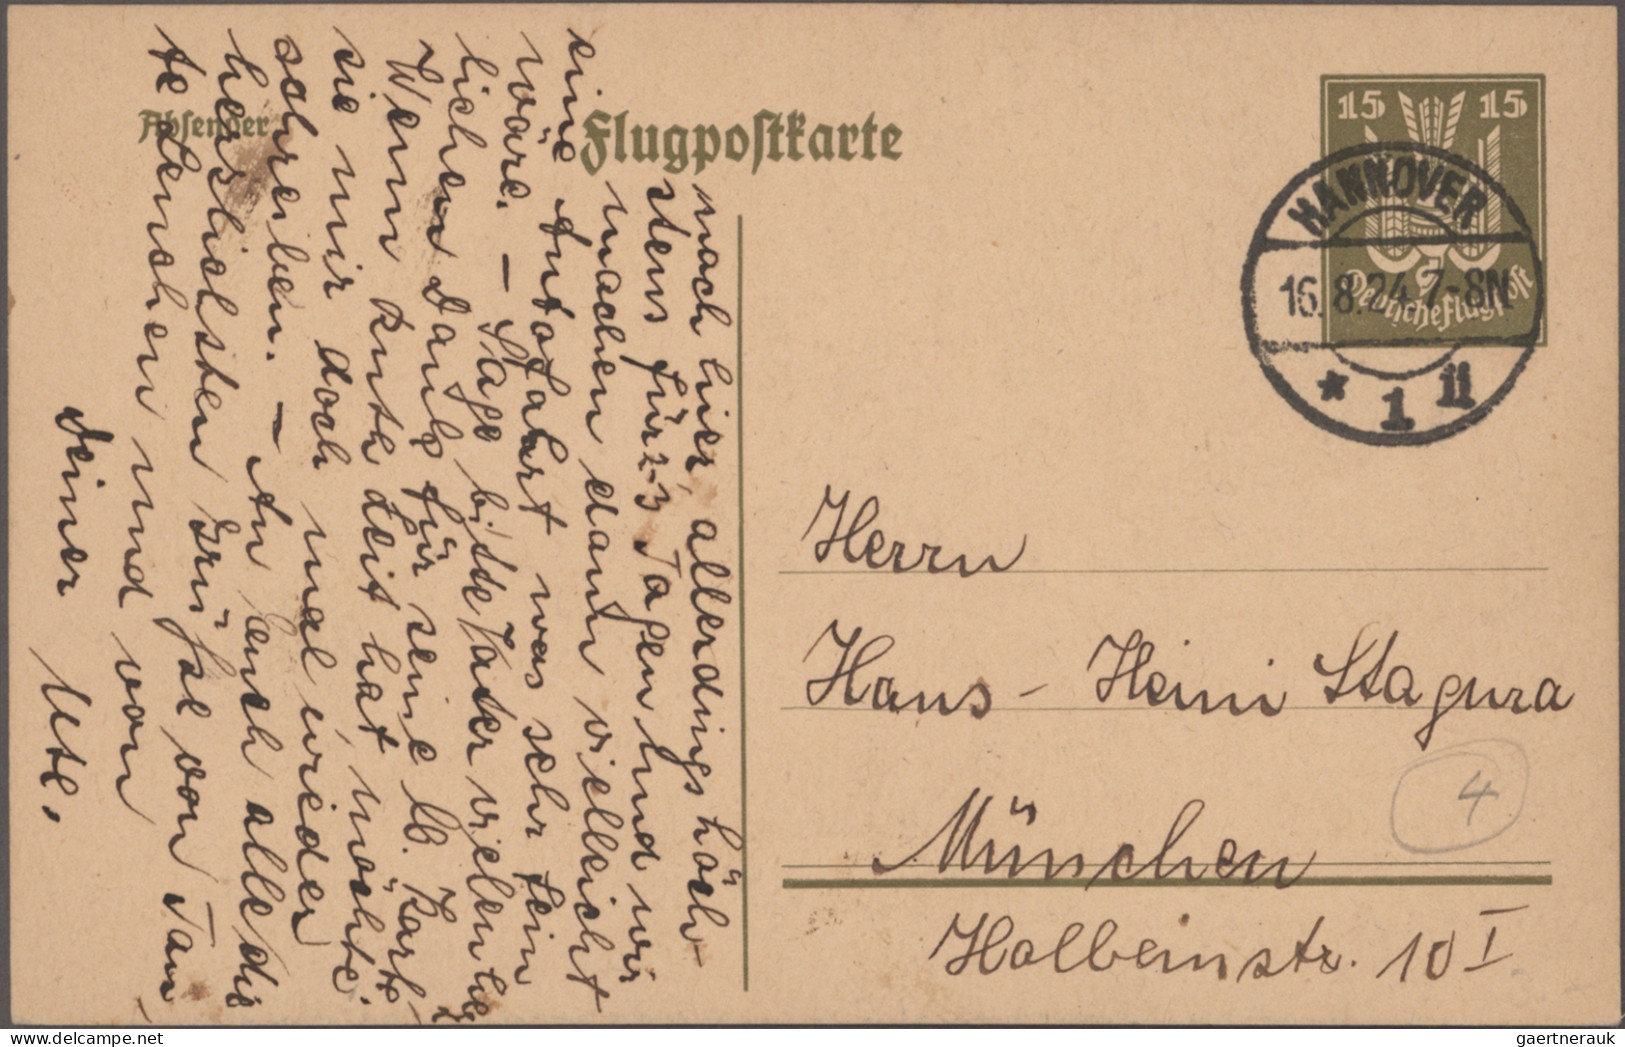 Absender
Flugpostkarte
15 15
Deutsche Flugpost
HANNOVER
16.8.24.7-8N
* 1 II
nach hier, allerdings höch-
stens für 2-3 Tagen und wir
machen dann vielleicht
eine Autofahrt was sehr fein
wäre. — Sage bitte Vater vielen herz
lichen Dank für seine lb. Karte
Wenn Knute Zeit hat, möchte
sie mir doch mal wieder
schreiben. — An Euch alle die
herzlichsten Grüße von Tan-
te Lenchen und von
Deiner Ute.
Herrn
Hans-Heini Stagura
München
Holbeinstr. 10 I
4
gaertnerauk